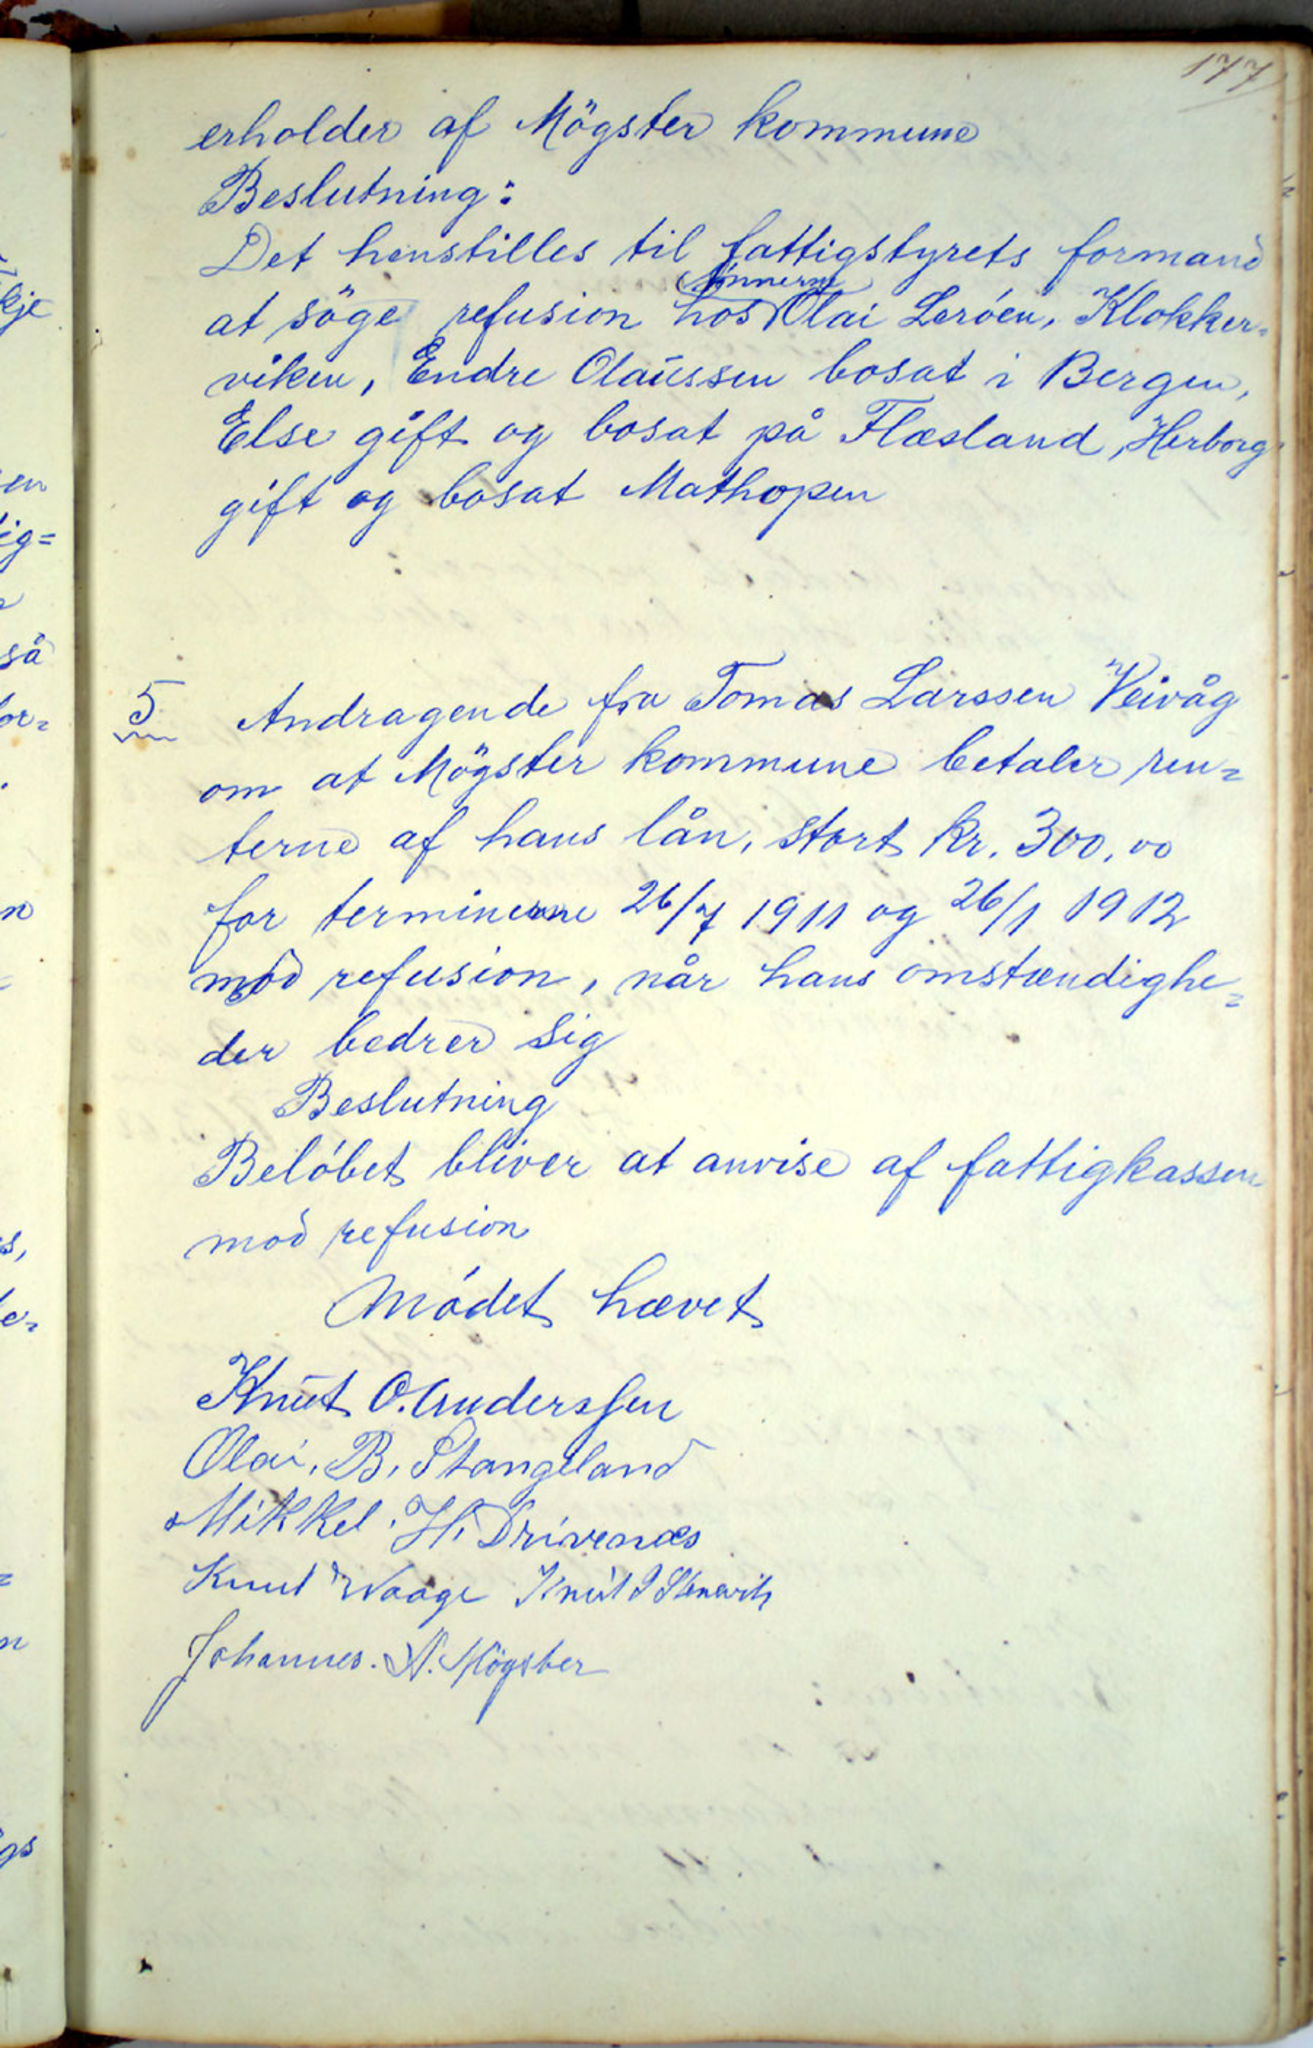 177
erholder af Mögster kommune
Beslutning:
Det henstilles til fattigstyrets formand
sönnerne
at söge refusion hos Olai Leröen, Klokker=
viken, Endre Olaussen bosat i Bergen,
Else gift og bosat på Flæsland, Herborg
gift og bosat Mathopen
5 Andragende fra Tomas Larssen Veivåg
om at Mögster kommune betaler ren=
terne af hans lån, stort kr. 300,00
for terminerne 26/7 1911 og 26/1 1912
mod refusion, når hans omstændighe=
der bedrer sig
Beslutning
Belöbet bliver at anvise af fattigkassen
mod refusion
Mödet hævet
Knut O. Anderssen
Olai. B. Stangeland
Mikkel. H. Drivenæs
Knut Waage Knut J Stenevik
Johannes. N. Mögster